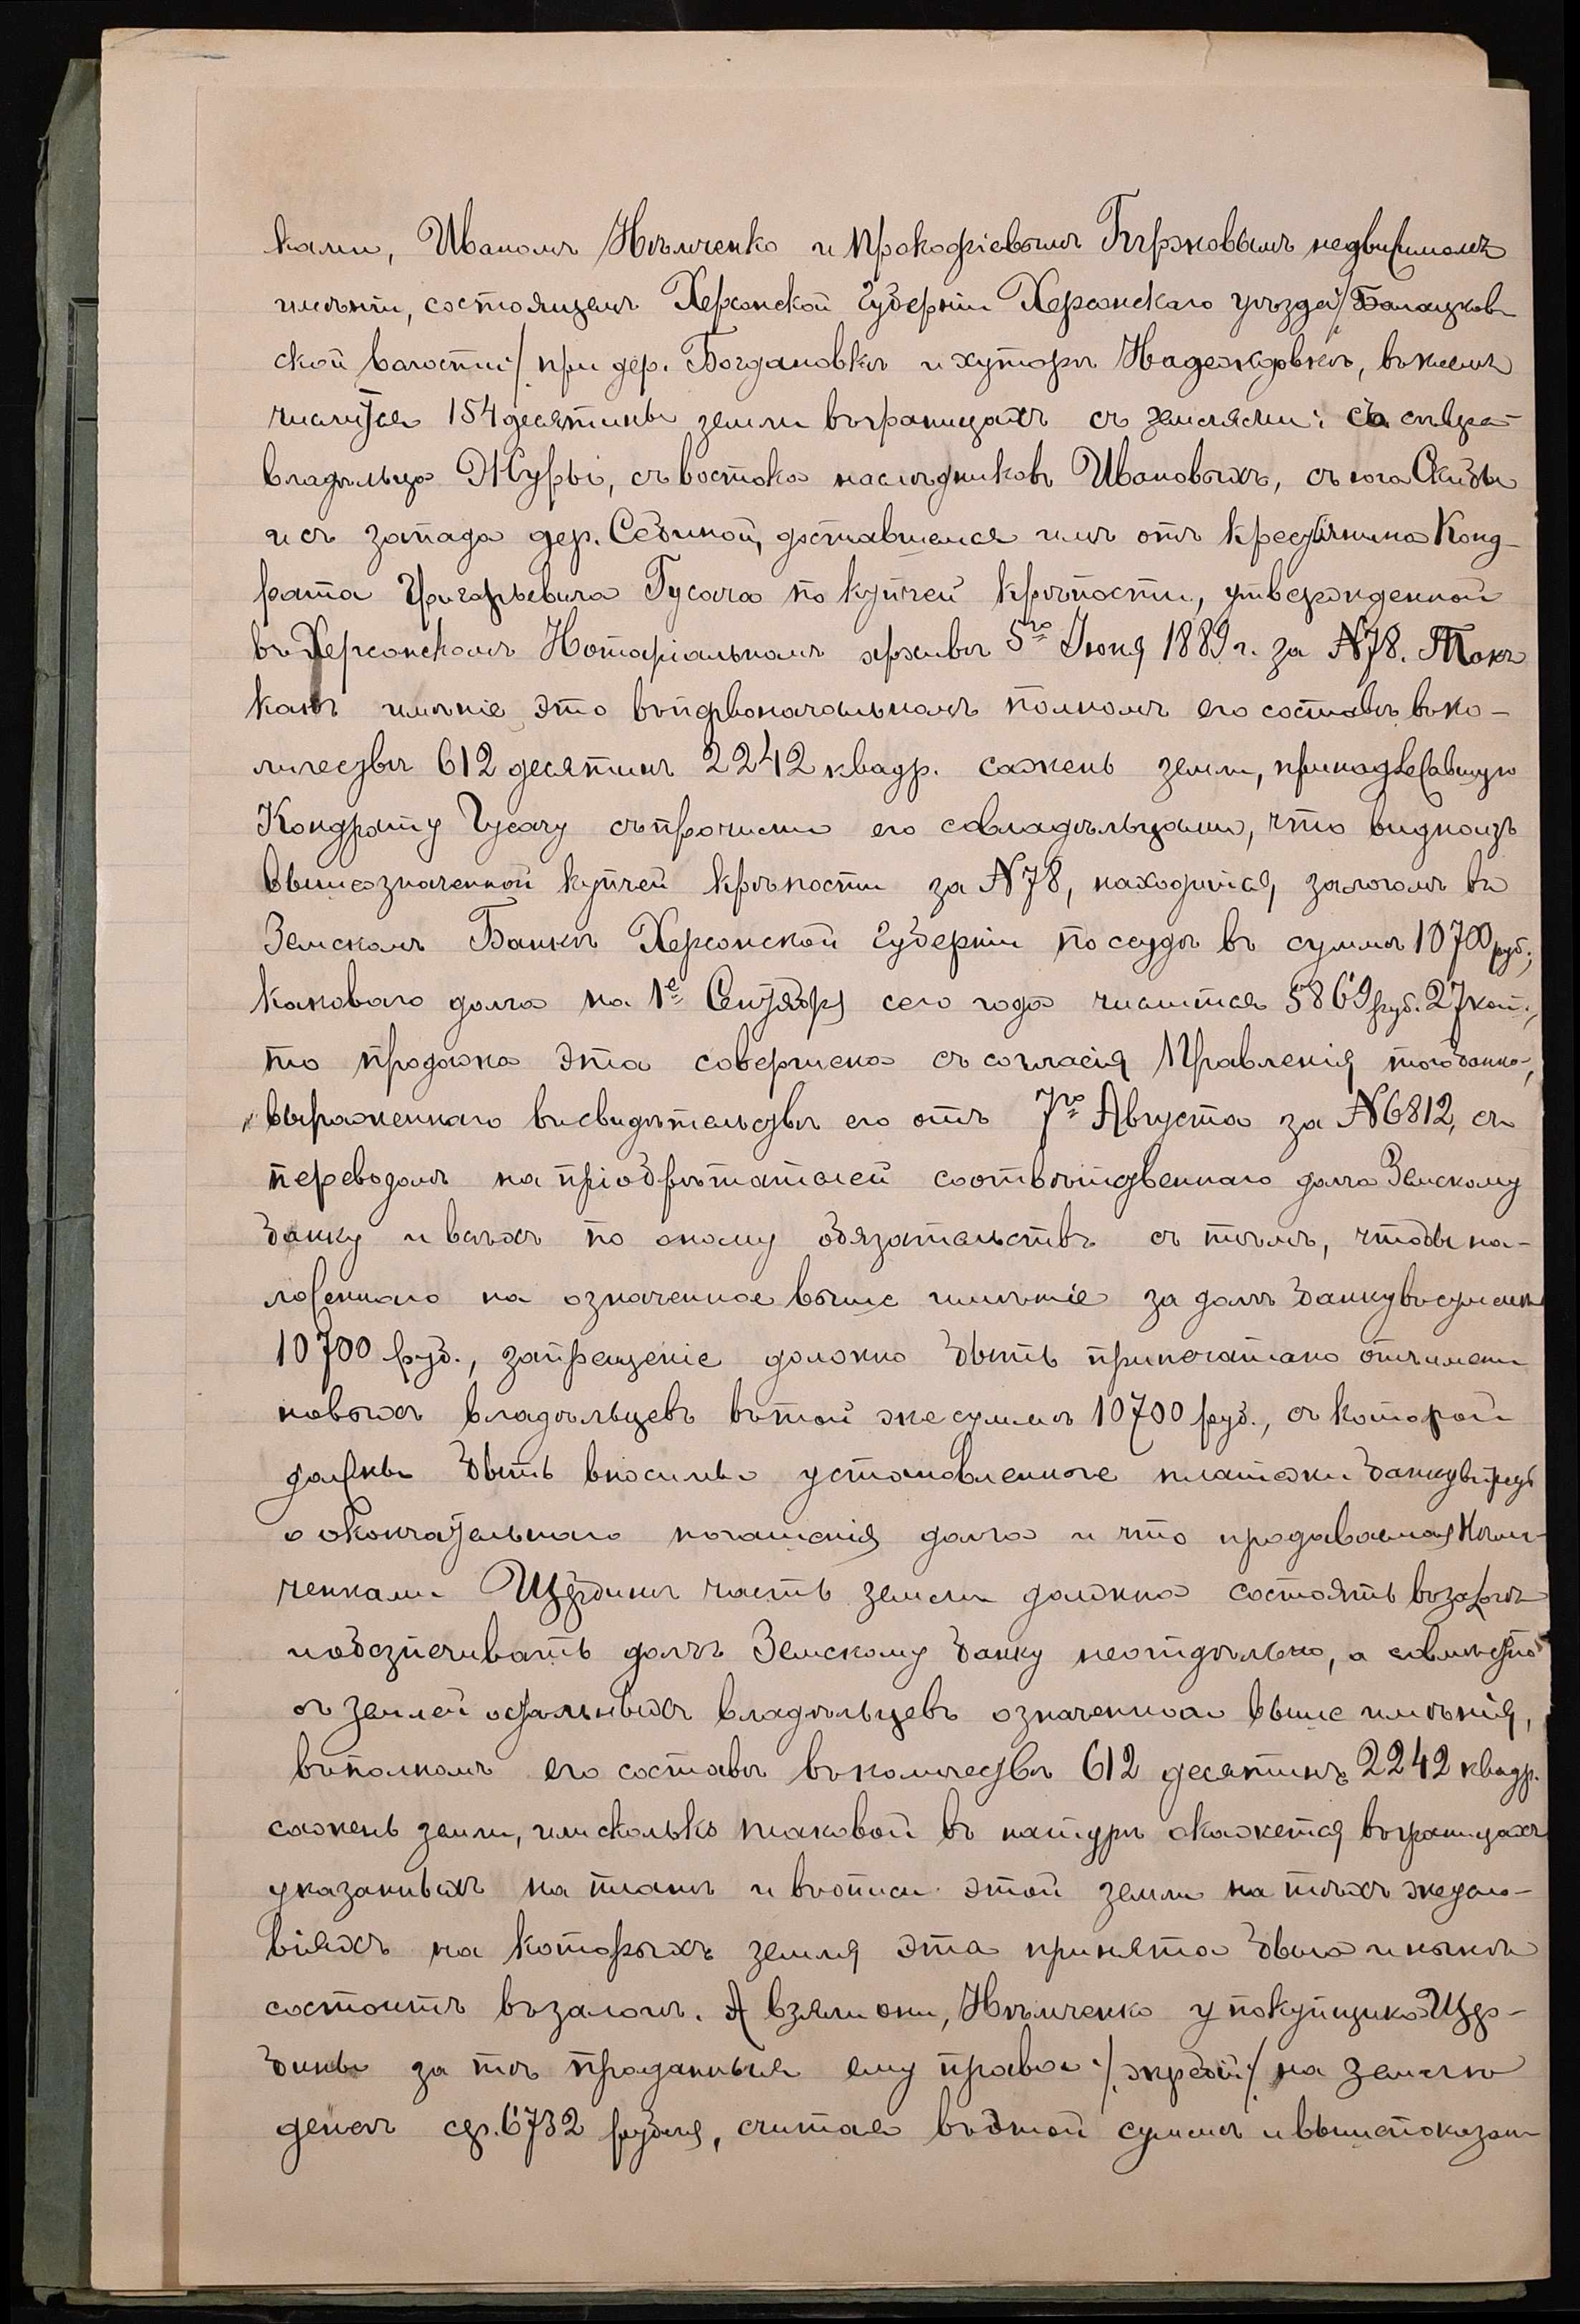 ками, Иваномъ Нѣмченко и Прокофіевымъ Гиржовымъ недвижимомъ
имѣніи, состоящемъ Херсонской Губерніи Херсонскаго уѣзда /Балацков-
ской волости:/ при дер. Богдановкѣ и хуторѣ Надеждовкѣ, въ коемъ
числится 154 десятины земли въ границахъ съ землями: съ сѣвера
владѣльца Журы, съ востока наслѣдниковъ Ивановыхъ, съ юга Скидъ
и съ запада дер. Себиной, доставшемся имъ отъ крестьянина Конд-
рата Григорьевича Гусача по купчей крѣпости, утвержденной
въ Херсонскомъ Нотаріальномъ архивѣ 5го Іюня 1889 г. за N78. Такъ
какъ имѣніе это въ первоначальномъ полномъ его составѣ въ ко-
личествѣ 612 десятинъ 2242 квадр. сажень земли, принадлежавшую
Кондрату Гусачу съ прочими его совладѣльцами, что видно изъ
вышеозначенной купчей крѣпости за N78, находится залогомъ въ
Земскомъ Банкѣ Херсонской Губерніи по ссудѣ въ суммѣ 10700 руб.,
каковаго долга на 1е Сентября сего года числится 5869 руб. 27 коп.,
то продажа эта совершена съ согласія Правленія того банка,
выраженнаго въ свидѣтельствѣ его отъ 7го Августа за N6812, съ
переводомъ на пріобрѣтателей соотвѣтственнаго долга Земскому
банку и всѣхъ по оному обязательствъ съ тѣмъ, чтобы на-
ложеннаго на означенное выше имѣніе за долгъ банку въ суммѣ
10700 руб., запрещеніе должно быть припечатано отъ имени
новыхъ владѣльцевъ въ той же суммѣ 10700 руб., съ которой
должны быть вносимы установленные платежи банку впредь
о окончательнаго погашенія долга и что продаваемая Нѣм-
ченками Щербинѣ часть земли должна состоять въ залогѣ
и обезпечивать долгъ Земскому банку неотдѣльно, а совмѣстно
съ землей остальныхъ владѣльцевъ означеннаго выше имѣнія,
въ полномъ его составѣ въ количествѣ 612 десятинъ 2242 квадр.
сажень земли, или сколько таковой въ натурѣ окажется въ границахъ
указанныхъ на планѣ и въ описи этой земли на тѣхъ же усло-
віяхъ на которыхъ земля эта принята была и нынѣ
состоитъ въ залогѣ. А взяли они, Нѣмченко у покупщика Щер-
бины за тѣ проданныя ему права :/жребій:/ на землю
денегъ ср. 6732 рубля, считая въ этой суммѣ и вышепоказан-